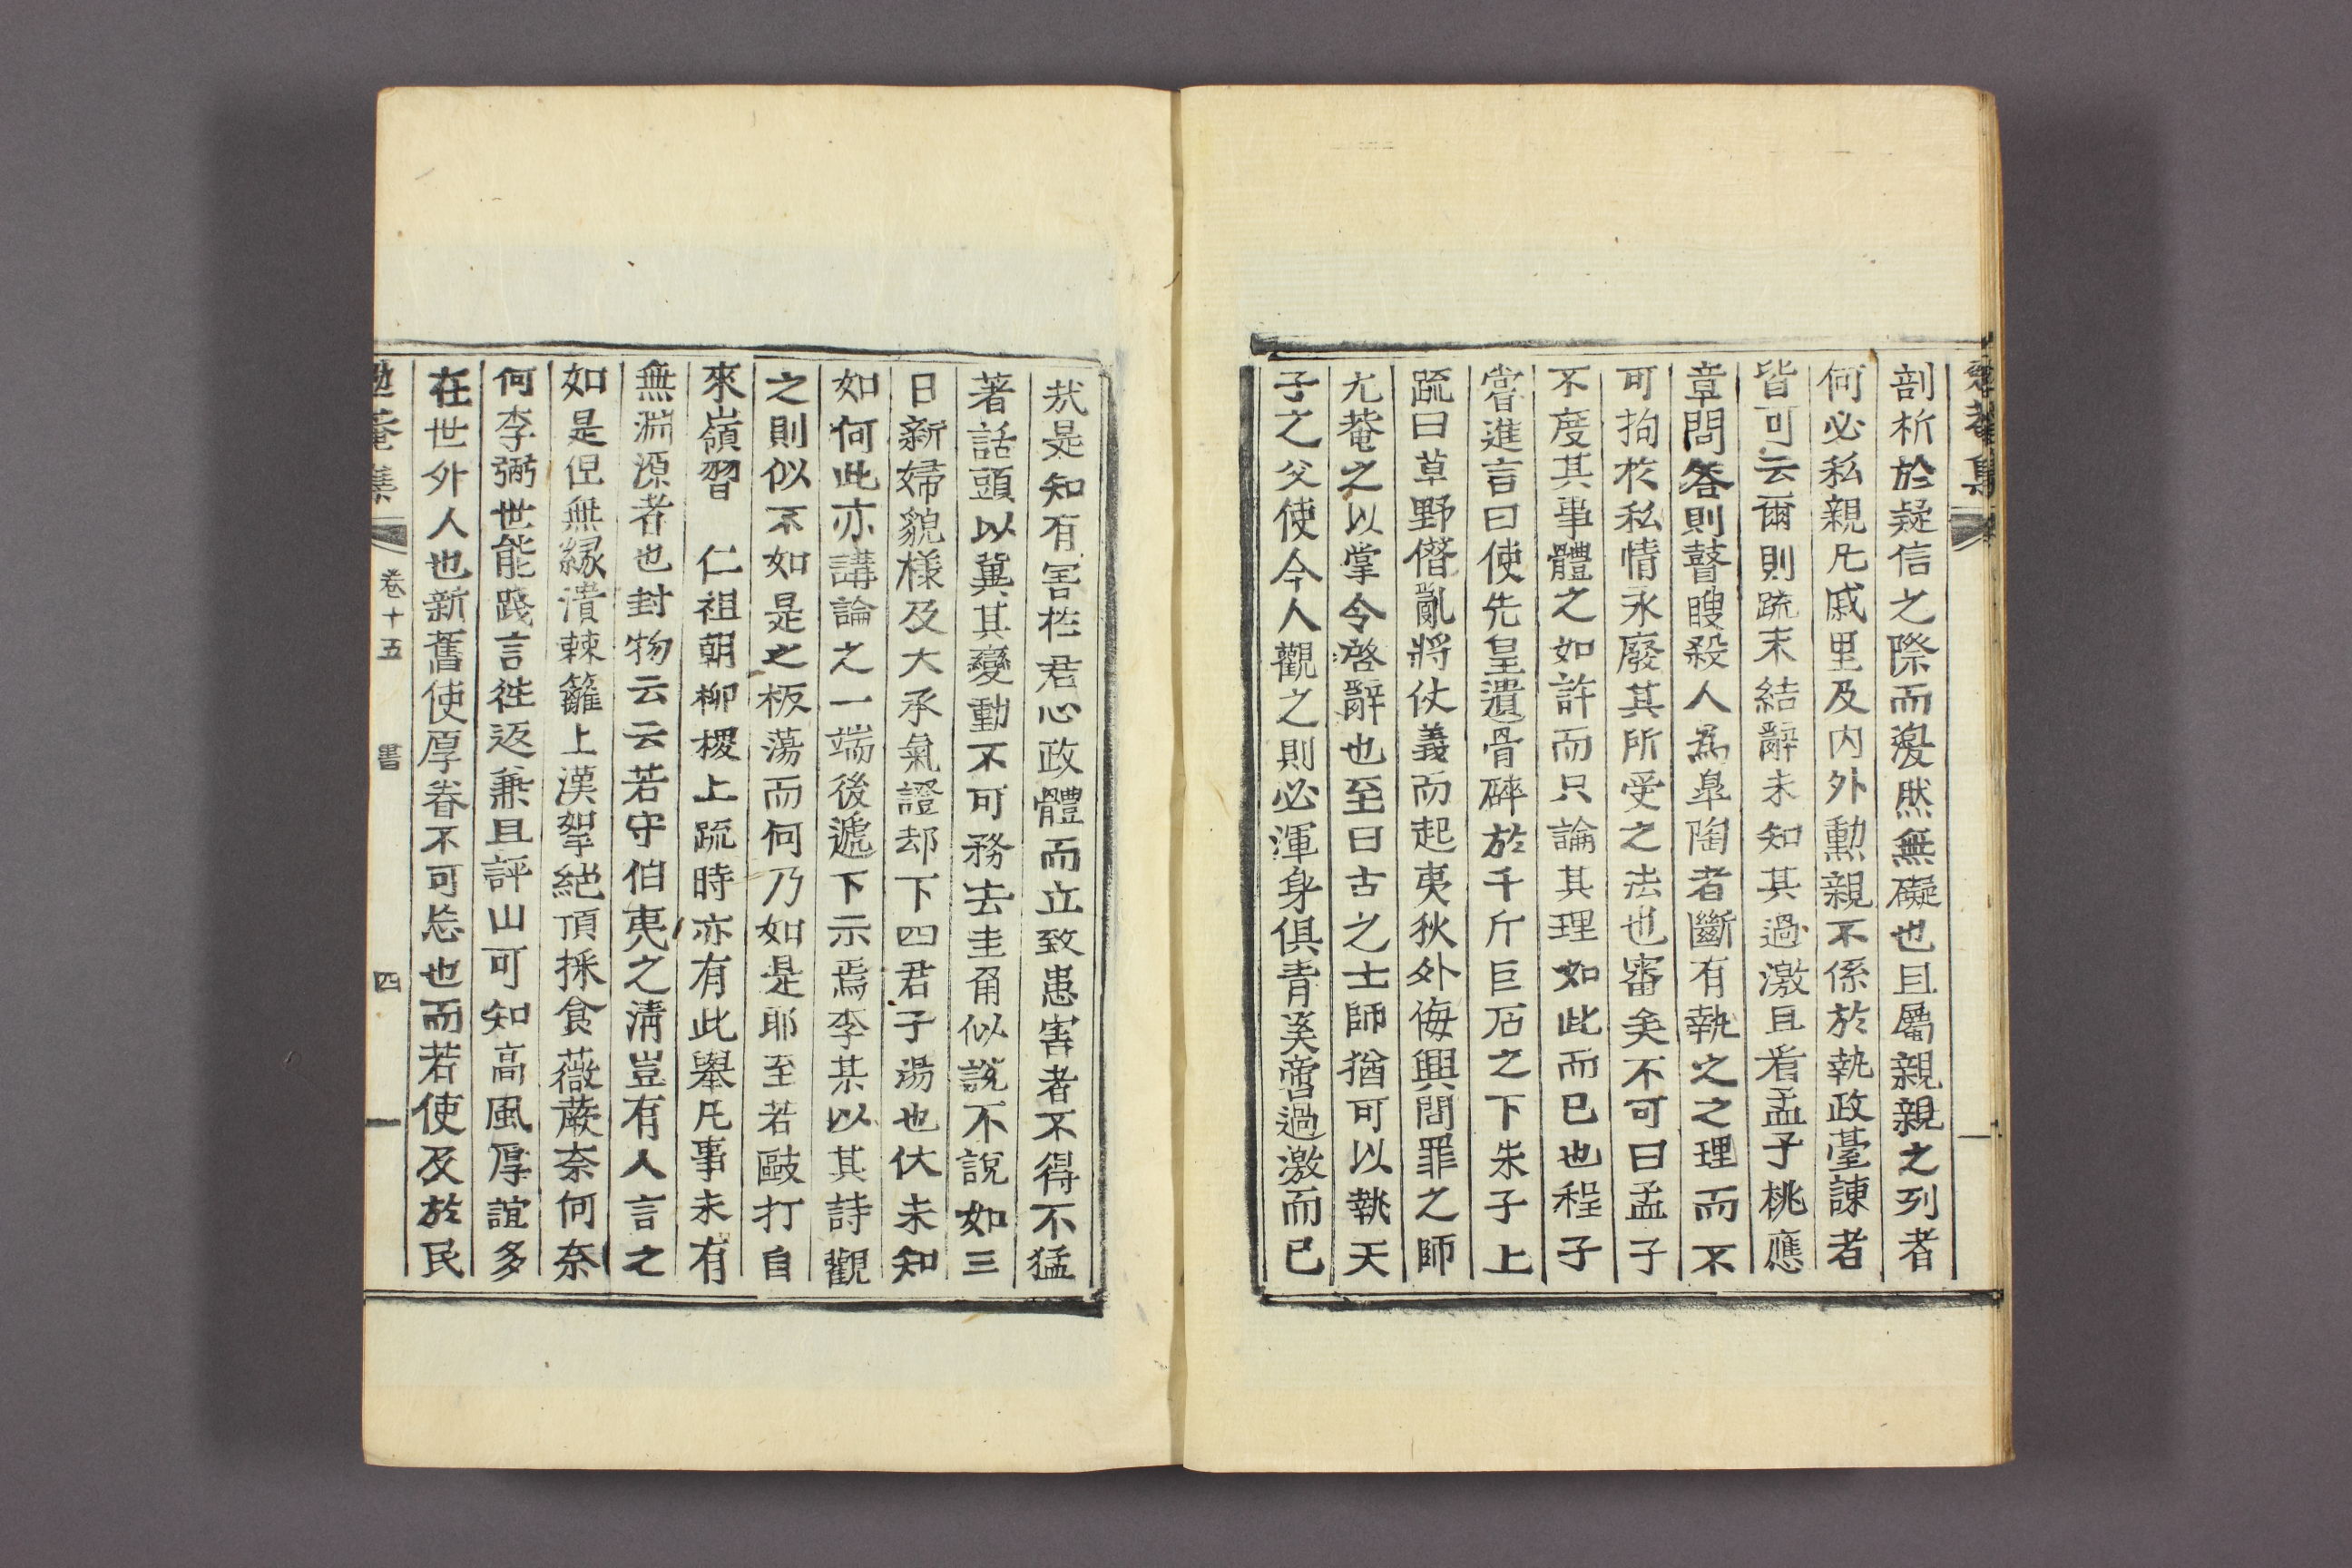 勉菴集
剖析於疑信之際而邊然無礙也且屬親親之列者
何必私親凡戚里及內外勳親不係於執政臺諫者
皆可云爾則疏末結辭未知其過激且看孟子桃應
章問答則瞽瞍殺人爲臯陶者斷有執之之理而不
可拘於私情永廢其所受之法也審矣不可曰孟子
不度其事體之如許而只論其理如此而已也程子
嘗進言曰使先皇遺骨碎於千斤巨石之下朱子上
疏曰草野僭亂將仗義而起夷狄外侮興問罪之師
尤菴之以掌令啓辭也至曰古之士師猶可以執天
子之父使今人觀之則必渾身俱青奚啻過激而已
哉是知有害於君心政體而立致患害者不得不猛
著話頭以冀其變動不可務去圭角似說不說如三
日新婦貌樣及大承氣證却下四君子湯也伏未知
如何此亦講論之一端後遞下示焉李某以其詩觀
之則似不如是之板蕩而何乃如是耶至若毆打自
來嶺習 仁祖朝柳㮨上疏時亦有此擧凡事未有
無淵源者也封物云云若守伯夷之淸豈有人言之
如是但無緣潰棘籬上漢拏絕頂採食薇蕨奈何奈
何李弼世能踐言往返兼且評山可知高風厚誼多
在世外人也新舊使厚眷不可忘也而若使及於民
勉菴集 卷十五 書 四